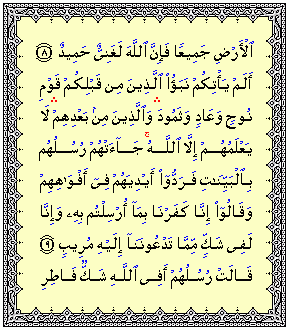 ٱلۡأَرۡضِ جَمِيعٗا فَإِنَّ ٱللَّهَ لَغَنِيٌّ حَمِيدٌ ٨
أَلَمۡ يَأۡتِكُمۡ نَبَؤُاْ ٱلَّذِينَ مِن قَبۡلِكُمۡ قَوۡمِ
نُوحٖ وَعَادٖ وَثَمُودَۛ وَٱلَّذِينَ مِنۢ بَعۡدِهِمۡۛ لَا
يَعۡلَمُهُمۡ إِلَّا ٱللَّهُۚ جَآءَتۡهُمۡ رُسُلُهُم
بِٱلۡبَيِّنَٰتِ فَرَدُّوٓاْ أَيۡدِيَهُمۡ فِيٓ أَفۡوَٰهِهِمۡ
وَقَالُوٓاْ إِنَّا كَفَرۡنَا بِمَآ أُرۡسِلۡتُم بِهِۦ وَإِنَّا
لَفِي شَكّٖ مِّمَّا تَدۡعُونَنَآ إِلَيۡهِ مُرِيبٖ ٩
قَالَتۡ رُسُلُهُمۡ أَفِي ٱللَّهِ شَكّٞ فَاطِرِ